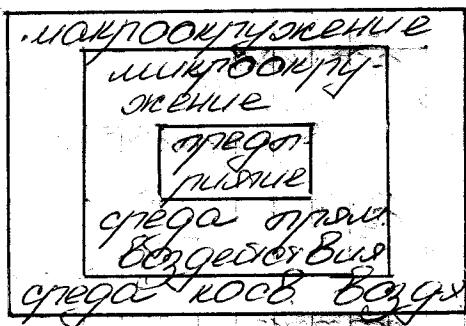 макроокружение
микроокру-
жение
предп-
риятие
среда прям.
воздействия
среда косв. возд-я